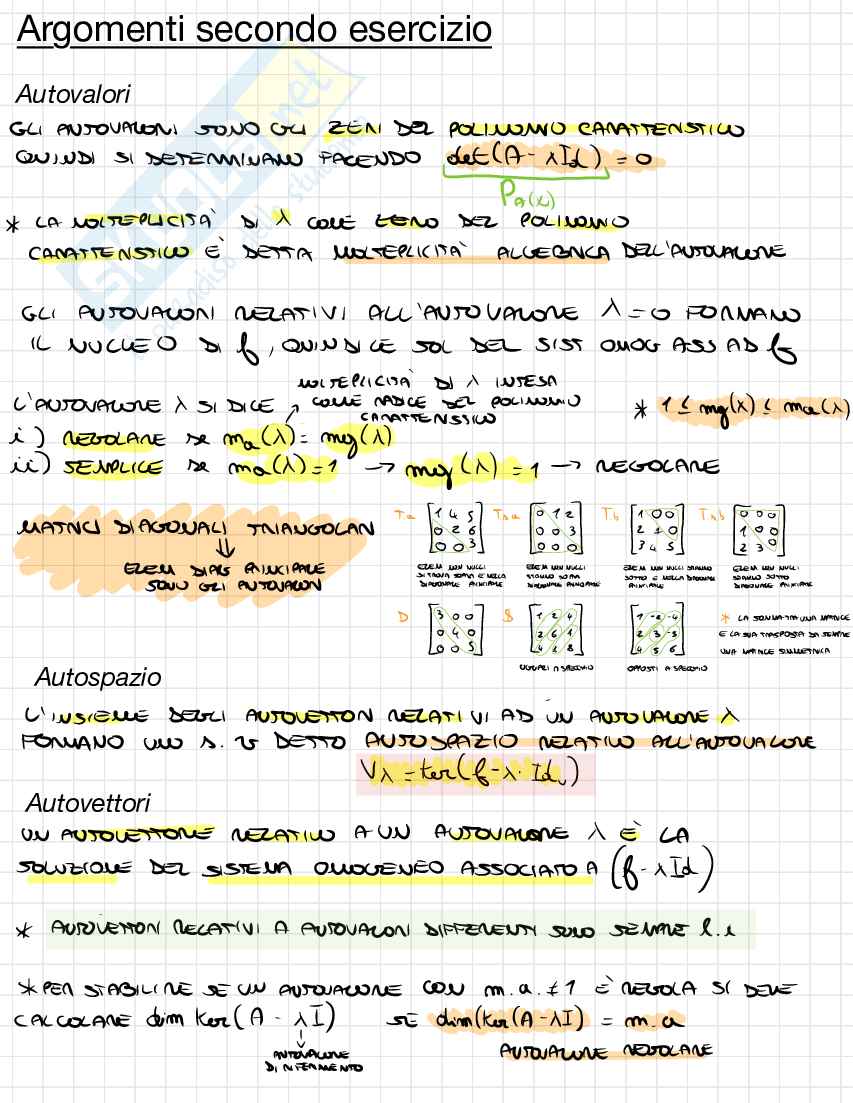 Argomenti secondo esercizio
Autovalori
GLI AUTOVALORI SONO GLI ZERI DEL POLINOMIO CARATTERISTICO
QUINDI SI DETERMINANO FACENDO det(A-λId) = 0
PA(λ)
* LA MOLTEPLICITA' DI λ COME ZERO DEL POLINOMIO
CARATTERISTICO E' DETTA MOLTEPLICITA' ALGEBRICA DELL'AUTOVALORE
GLI AUTOVALORI RELATIVI ALL'AUTOVALORE λ=0 FORMANO
IL NUCLEO DI f, QUINDI LE SOL DEL SIST OMOG ASS AD f
MOLTEPLICITA' DI λ INTESA
COME RADICE DEL POLINOMIO
CARATTERISTICO
L'AUTOVALORE λ SI DICE
* 1 ≤ mg(λ) ≤ ma(λ)
i) REGOLARE se ma(λ) = mg(λ)
ii) SEMPLICE se ma(λ)=1 → mg(λ)=1 → REGOLARE
MATRICI DIAGONALI TRIANGOLARI
ELEM DIAG PRINCIPALE
SONO GLI AUTOVALORI
Ta 1 4 5
0 2 6
0 0 3
Tsa 0 1 2
0 0 3
0 0 0
Tb 1 0 0
2 1 0
3 4 5
Tsb 0 0 0
1 0 0
2 3 0
ELEM NON NULLI
SI TROVA SOPRA E NELLA
DIAGONALE PRINCIPALE
ELEM NON NULLI
STANNO SOPRA
DIAGONALE PRINCIPALE
ELEM NON NULLI STANNO
SOTTO E NELLA DIAGONALE
PRINCIPALE
ELEM NON NULLI
STANNO SOTTO
DIAGONALE PRINCIPALE
D 3 0 0
0 4 0
0 0 5
S 1 2 4
2 6 1
4 1 8
UGUALI A SPECCHIO
1 -2 -4
2 3 -5
4 5 6
OPPOSTI A SPECCHIO
* LA SOMMA TRA UNA MATRICE
E LA SUA TRASPOSTA DA SEMPRE
UNA MATRICE SIMMETRICA
Autospazio
L'INSIEME DEGLI AUTOVETTORI RELATIVI AD UN AUTOVALORE λ
FORMANO UNO s.v DETTO AUTOSPAZIO RELATIVO ALL'AUTOVALORE
Vλ = ker(f-λ·Idv)
Autovettori
UN AUTOVETTORE RELATIVO A UN AUTOVALORE λ È LA
SOLUZIONE DEL SISTEMA OMOGENEO ASSOCIATO A (f-λId)
* AUTOVETTORI RELATIVI A AUTOVALORI DIFFERENTI SONO SEMPRE l.i
* PER STABILIRE SE UN AUTOVALORE CON m.a. ≠ 1 È REGOLA SI DEVE
CALCOLARE dim Ker(A - λI) SE dim(Ker(A-λI) = m.a
AUTOVALORE
DI RIFERIMENTO
AUTOVALORE REGOLARE
SKUOLA.net
il paradiso dello studente